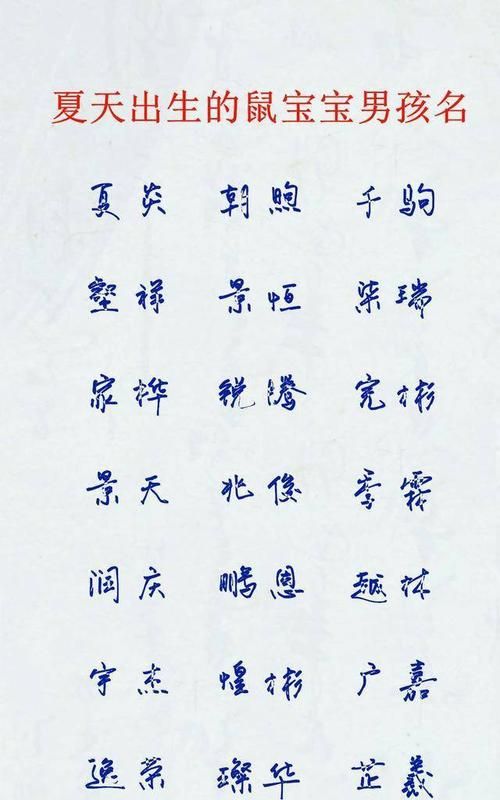 夏天出生的鼠宝宝男孩名
夏炎 朝煦 千驹
壑禄 景恒 柒瑞
家烨 锐腾 宪彬
景天 兆俊 雪霖
润庆 鹏恩 越沐
宇杰 煌彬 广嘉
逸荣 璨华 芷羲